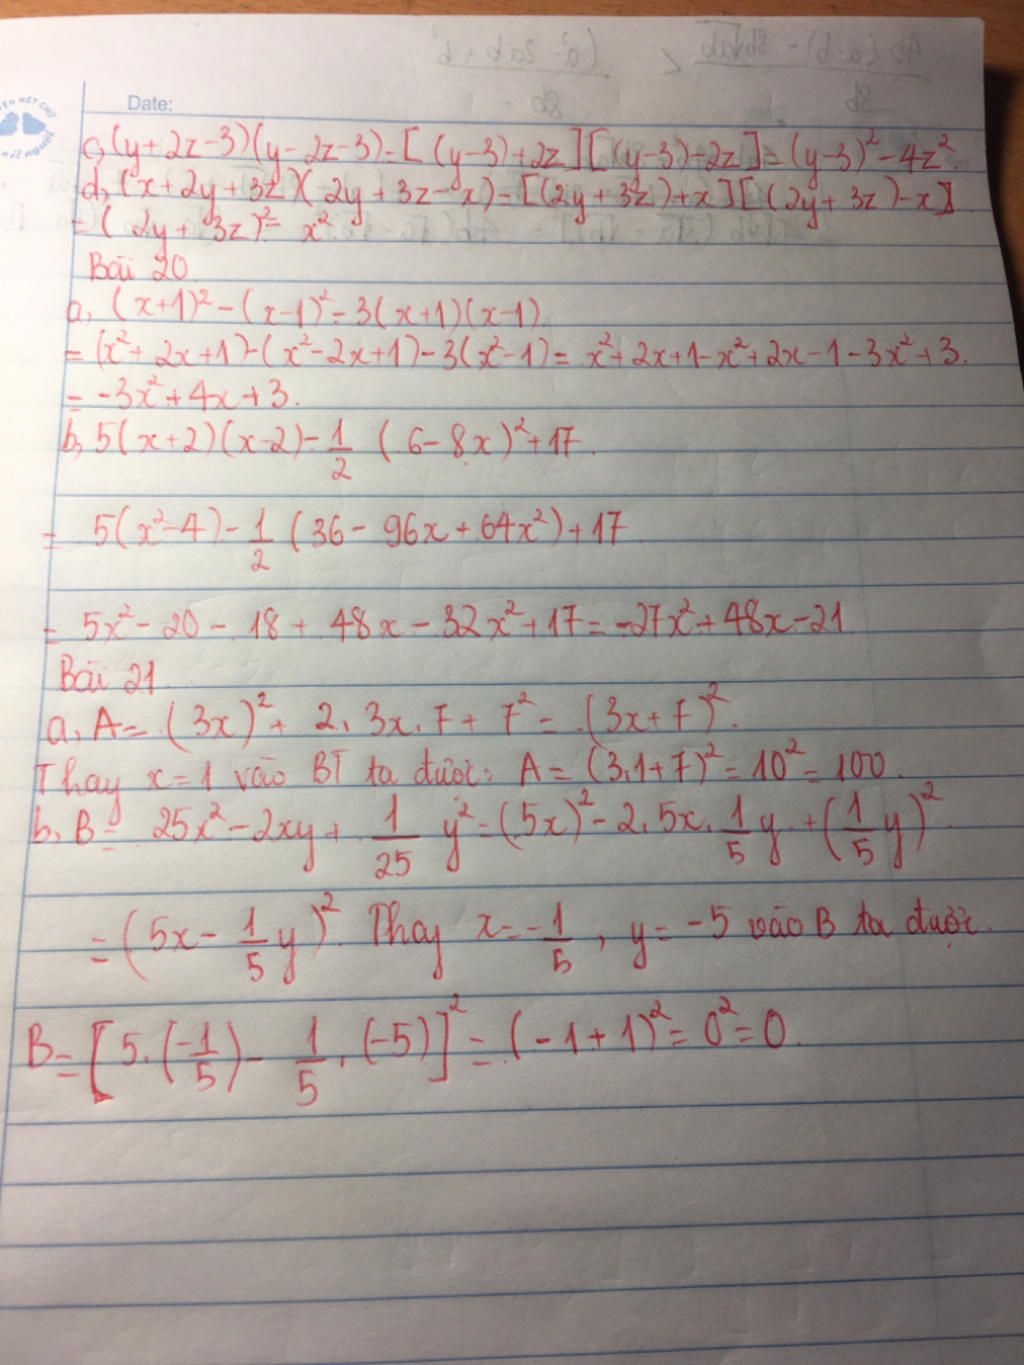 Date:
c, (y+2z-3)(y-2z-3)=[(y-3)+2z][(y-3)-2z]=(y-3)²-4z².
d, (x+2y+3z)(2y+3z-x)=[(2y+3z)+x][(2y+3z)-x]
=(2y+3z)²-x²
Bài 20
a, (x+1)²-(x-1)²-3(x+1)(x-1).
=(x²+2x+1)-(x²-2x+1)-3(x²-1)=x²+2x+1-x²+2x-1-3x²+3.
= -3x²+4x+3.
b, 5(x+2)(x-2)-1/2 (6-8x)²+17.
= 5(x²-4)-1/2 (36-96x+64x²)+17
= 5x²-20-18+48x-32x²+17=-27x²+48x-21
Bài 21
a, A=(3x)²+2.3x.7+7²=(3x+7)².
Thay x=1 vào BT ta được: A=(3.1+7)²=10²=100.
b, B= 25x²-2xy+1/25 y²=(5x)²-2.5x.1/5 y+(1/5 y)².
=(5x-1/5 y)². Thay x=-1/5, y=-5 vào B ta được.
B=[5.(-1/5)-1/5.(-5)]²=(-1+1)²=0²=0.